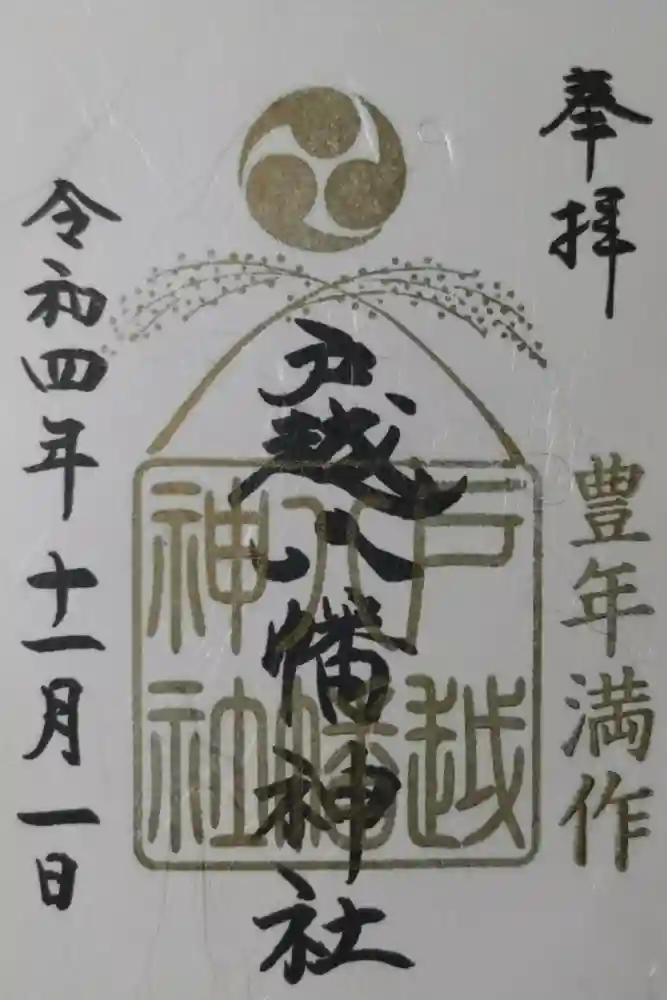 奉拝
豊年満作
戸越八幡神社
戸越
八幡
神社
令和四年十一月一日